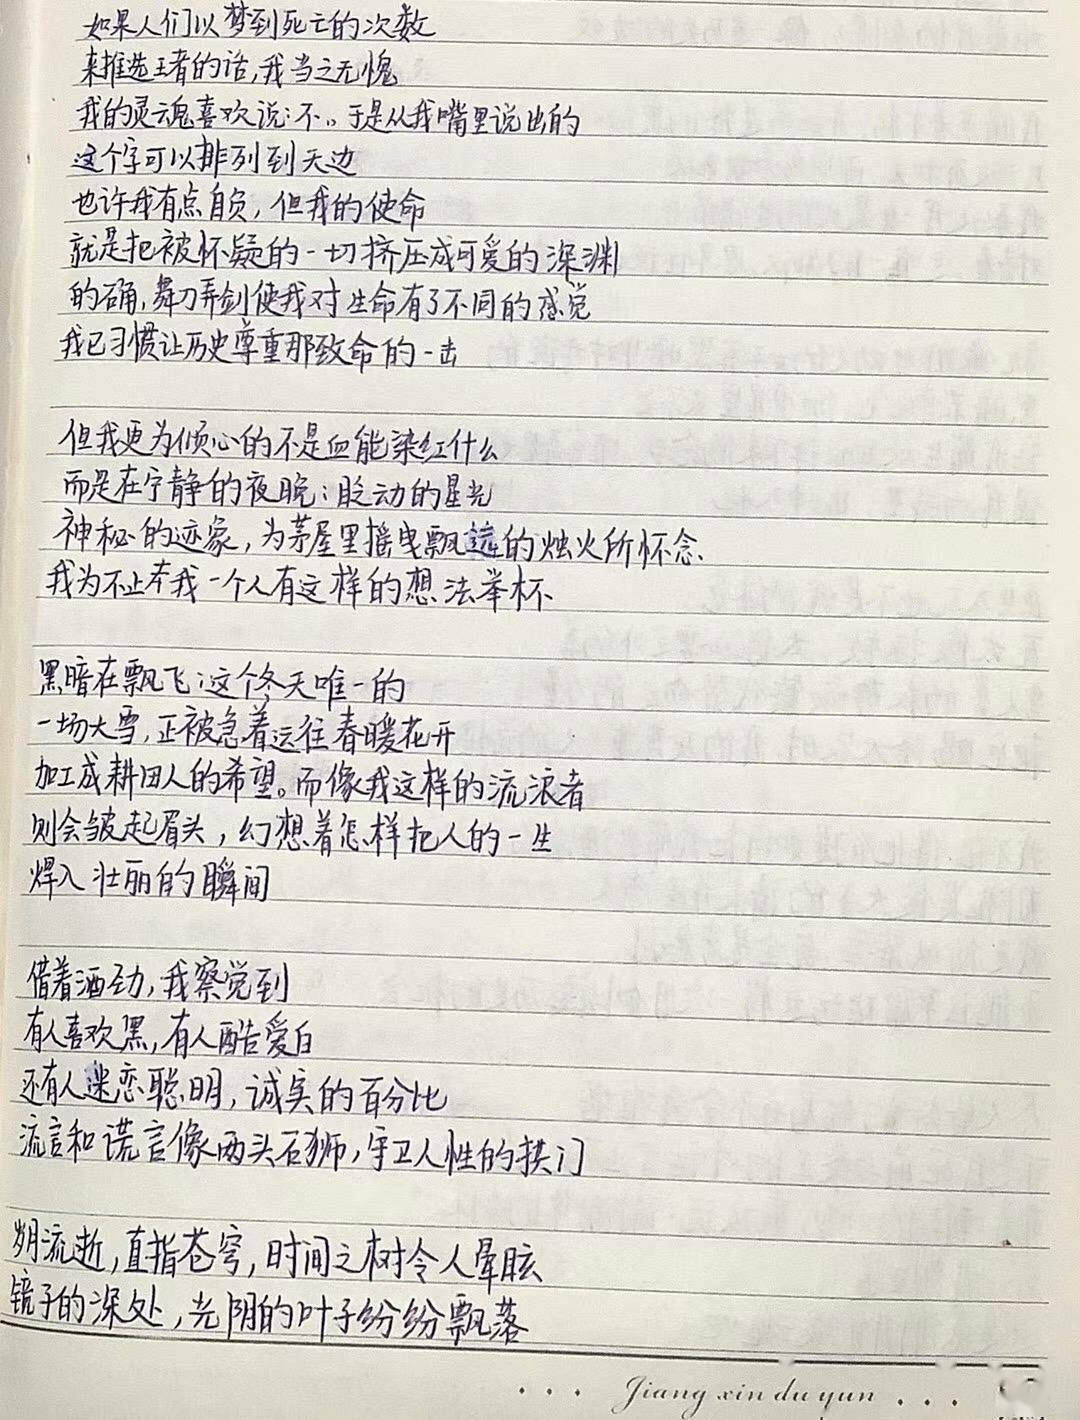 如果人们以梦到死亡的次数
来推选王者的话,我当之无愧
我的灵魂喜欢说:不。于是从我嘴里说出的
这个字可以排列到天边
也许我有点自负,但我的使命
就是把被怀疑的一切挤压成可爱的深渊
的确,舞刀弄剑使我对生命有了不同的感觉
我已习惯让历史尊重那致命的一击
但我更为倾心的不是血能染红什么
而是在宁静的夜晚:眨动的星光
神秘的迹象,为茅屋里摇曳飘远的烛火所怀念、
我为不止我一个人有这样的想法举杯
黑暗在飘飞:这个冬天唯一的
一场大雪,正被急着运往春暖花开
加工成耕田人的希望。而像我这样的流浪者
则会皱起眉头,幻想着怎样把人的一生
焊入壮丽的瞬间
借着酒劲,我察觉到
有人喜欢黑,有人酷爱白
还有人迷恋聪明,诚实的百分比
流言和谎言像两头石狮,守卫人性的拱门
流逝,直指苍穹,时间之树令人晕眩
镜子的深处,光阴的叶子纷纷飘落
Jiang xin du yun